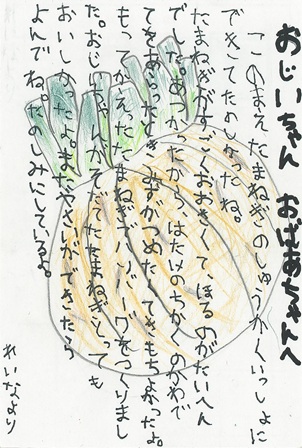 おじいちゃん おばあちゃんへ
このまえ、たまねぎのしゅうかくいっしょに
できてたのしかったね。
たまねぎがすごくおおきくて、ほるのがたいへん
でした。あつかったから、はたけのちかくのかわで
てをあらったとき、みずがつめたくてきもちよかったよ。
もってかえったたまねぎでハンバーグをつくりまし
た。おじいちゃんがそだてたたまねぎとっても
おいしかったよ。またやさいができたら
よんでね。たのしみにしているよ。
れいなより